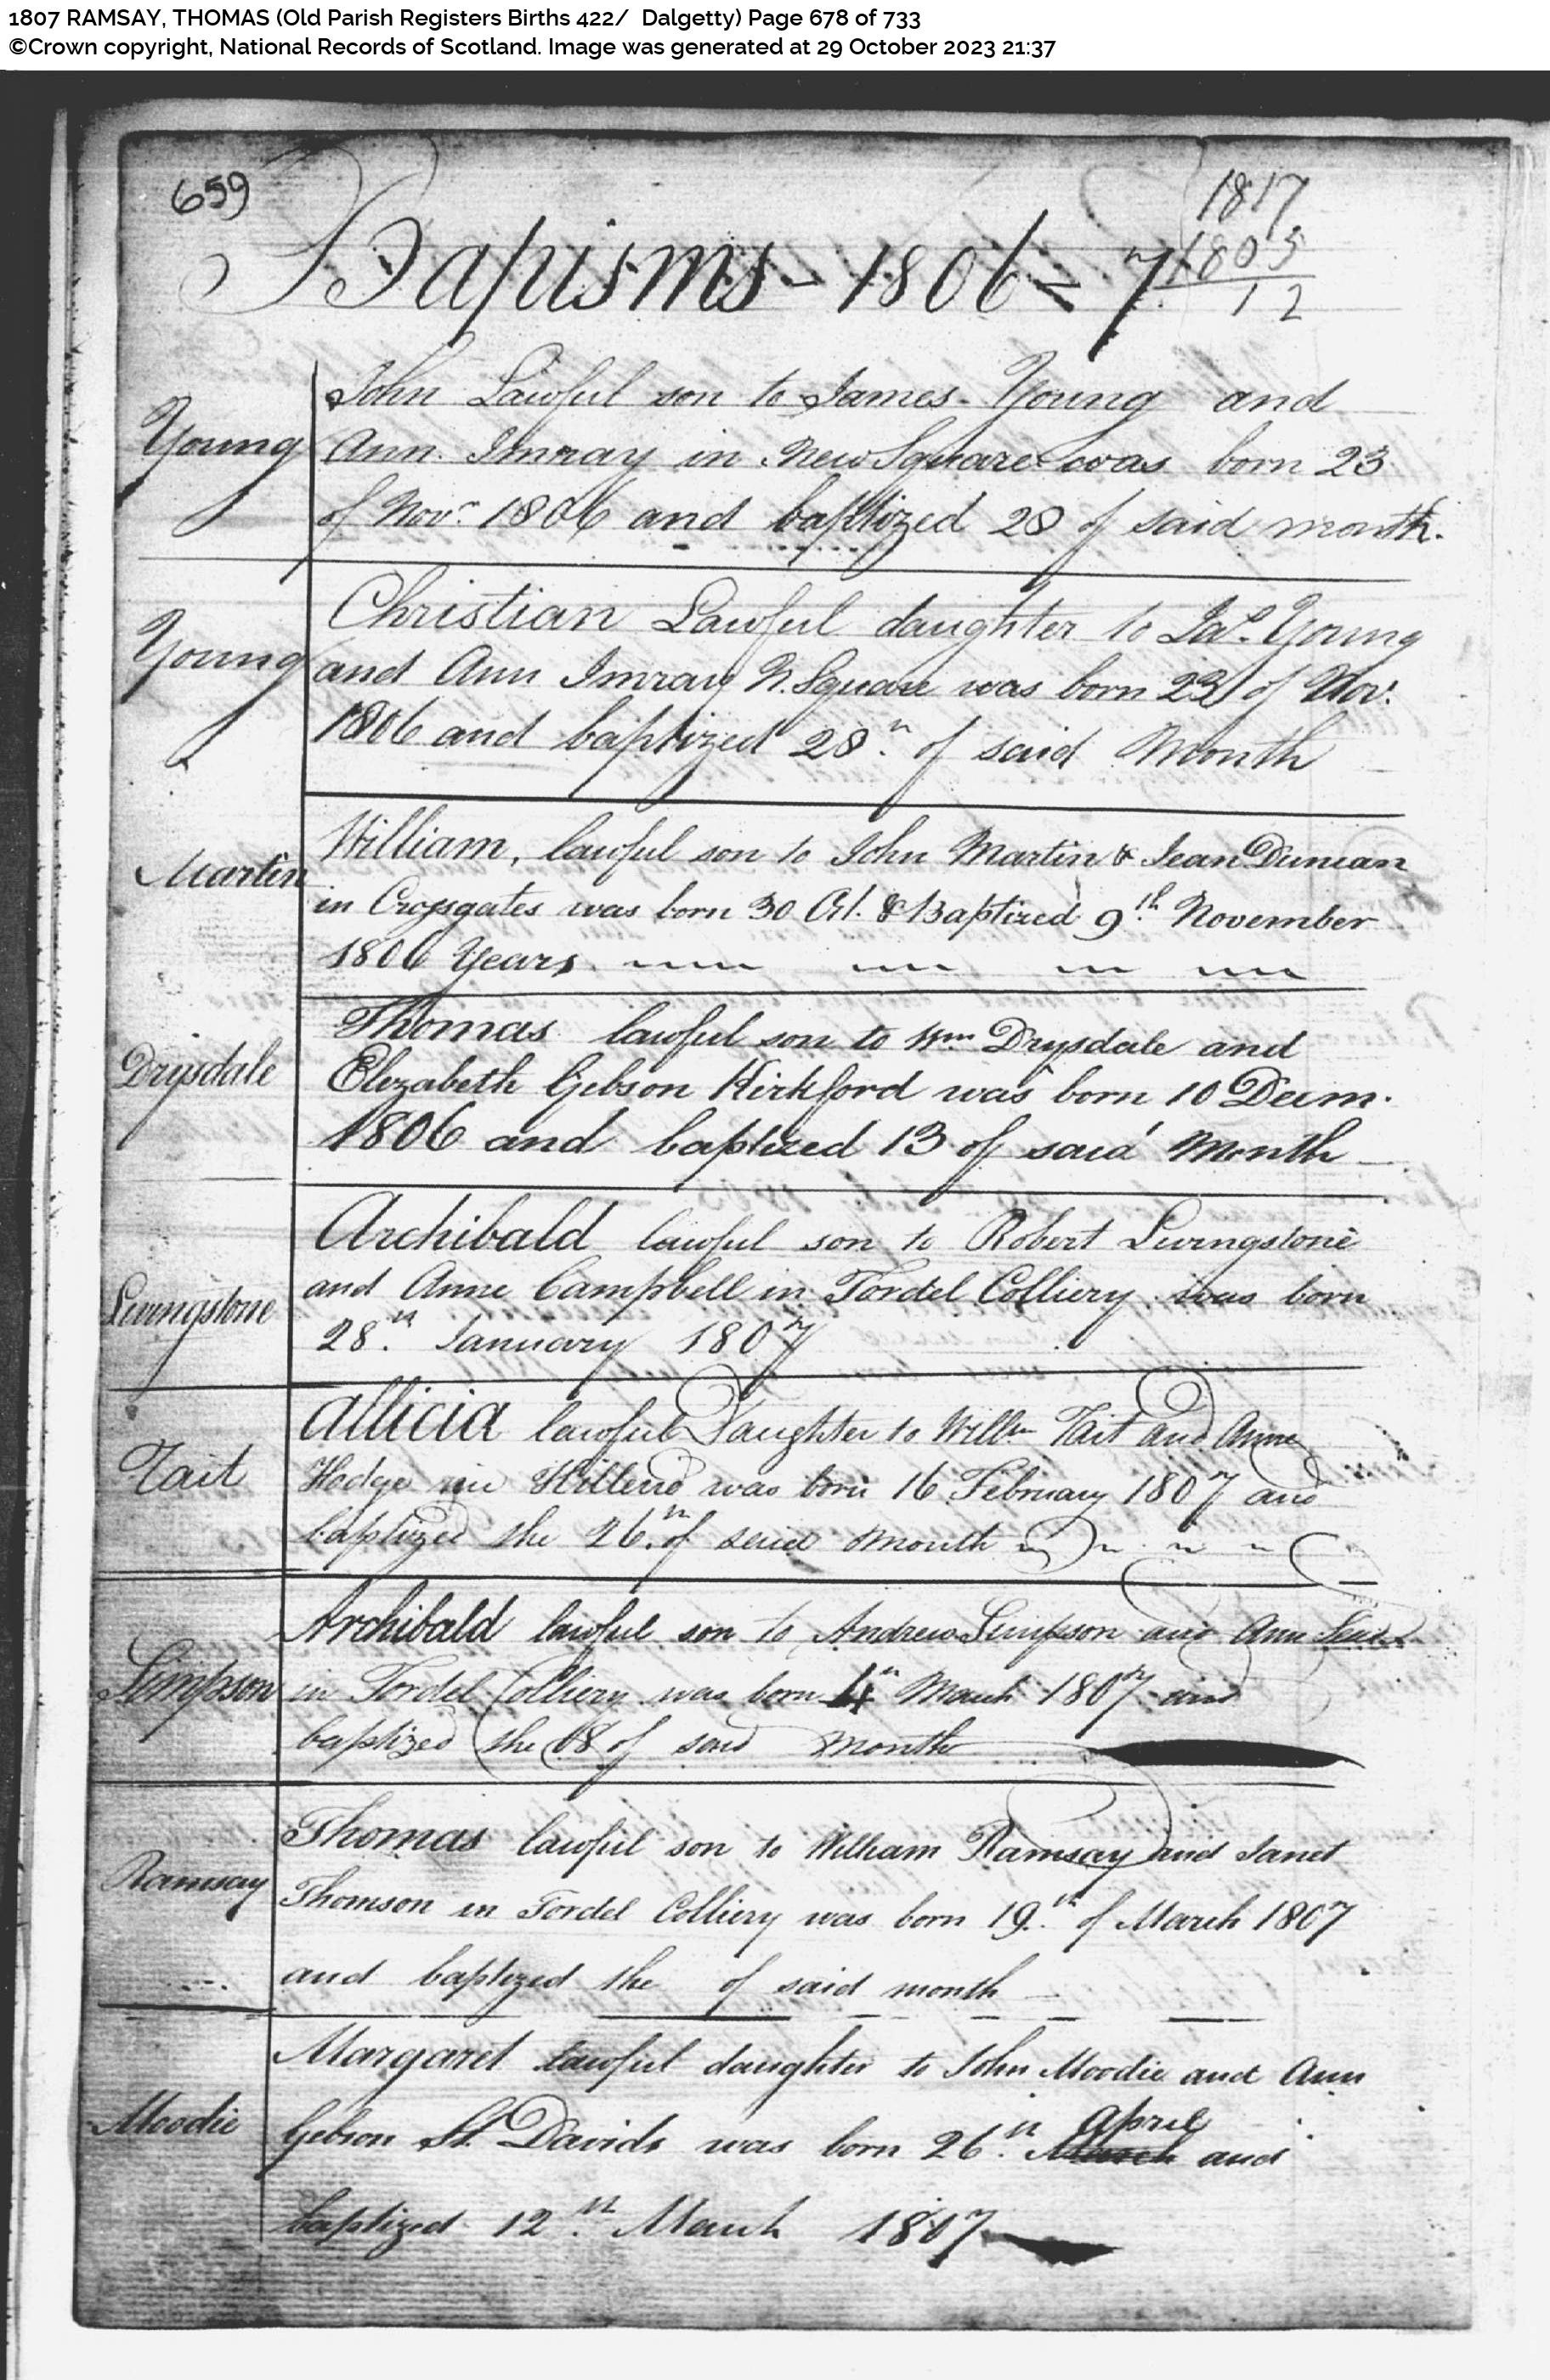 1807 RAMSAY, THOMAS (Old Parish Registers Births 422/ Dalgetty) Page 678 of 733
©Crown copyright, National Records of Scotland. Image was generated at 29 October 2023 21:37
659
1817
1805
12
Bapisms - 1806 = 7
John Lawful son to James Young and
Young
Ann Imray in New Square was born 23
of Novr 1806 and baptized 28 of said month.
Christian Lawful daughter to Jas. Young
Young
and Ann Imray N. Square was born 23 of Nov:
1806 and baptized 28th of said Month
William, lawful son to John Martin & Jean Duncan
Martin
in Crossgates was born 30 Oct. & Baptized 9th November
1806 Years
Thomas lawful son to Wm Drysdale and
Drysdale
Elezabeth Gibson Kirkford was born 10 Decem.
1806 and baptized 13 of said Month
Archibald lawful son to Robert Livingstone
Livingstone
and Anne Campbell in Fordel Colliery was born
28th January 1807
Allicia lawful Daughter to Willm Tait and Anne
Tait
Hodge in Hillend was born 16 February 1807 and
baptized the 26th of said Month
Archibald lawful son to Andrew Simpson and Ann
Simpson
in Fordel Colliery was born 4th March 1807 and
baptized the 18 of said Month
Thomas lawful son to William Ramsay and Janet
Ramsay
Thomson in Fordel Colliery was born 19th of March 1807
and baptized the of said month
Margaret lawful daughter to John Moodie and Ann
Moodie
Gibson St. Davids was born 26th March April and
baptized 12th March 1807